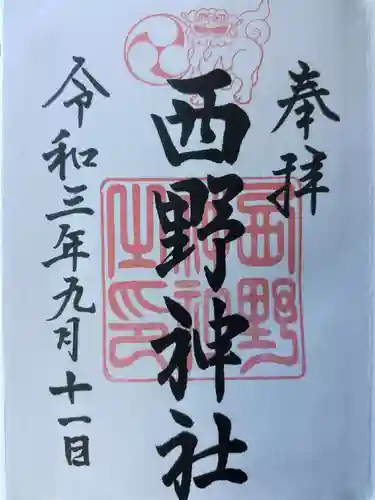 奉拝
西野神社
西野
神社
之印
令和三年九月十一日